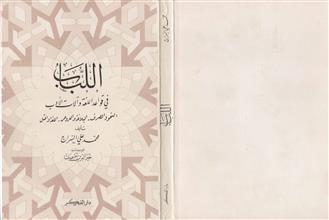 اللباب
في قواعد اللغة وآلات الأدب
النحو والصرف والبلاغة والعروض واللغة والمثل
تأليف
محمد علي السراج
خير الدين شمسي باشا
دار الفكر
اللباب